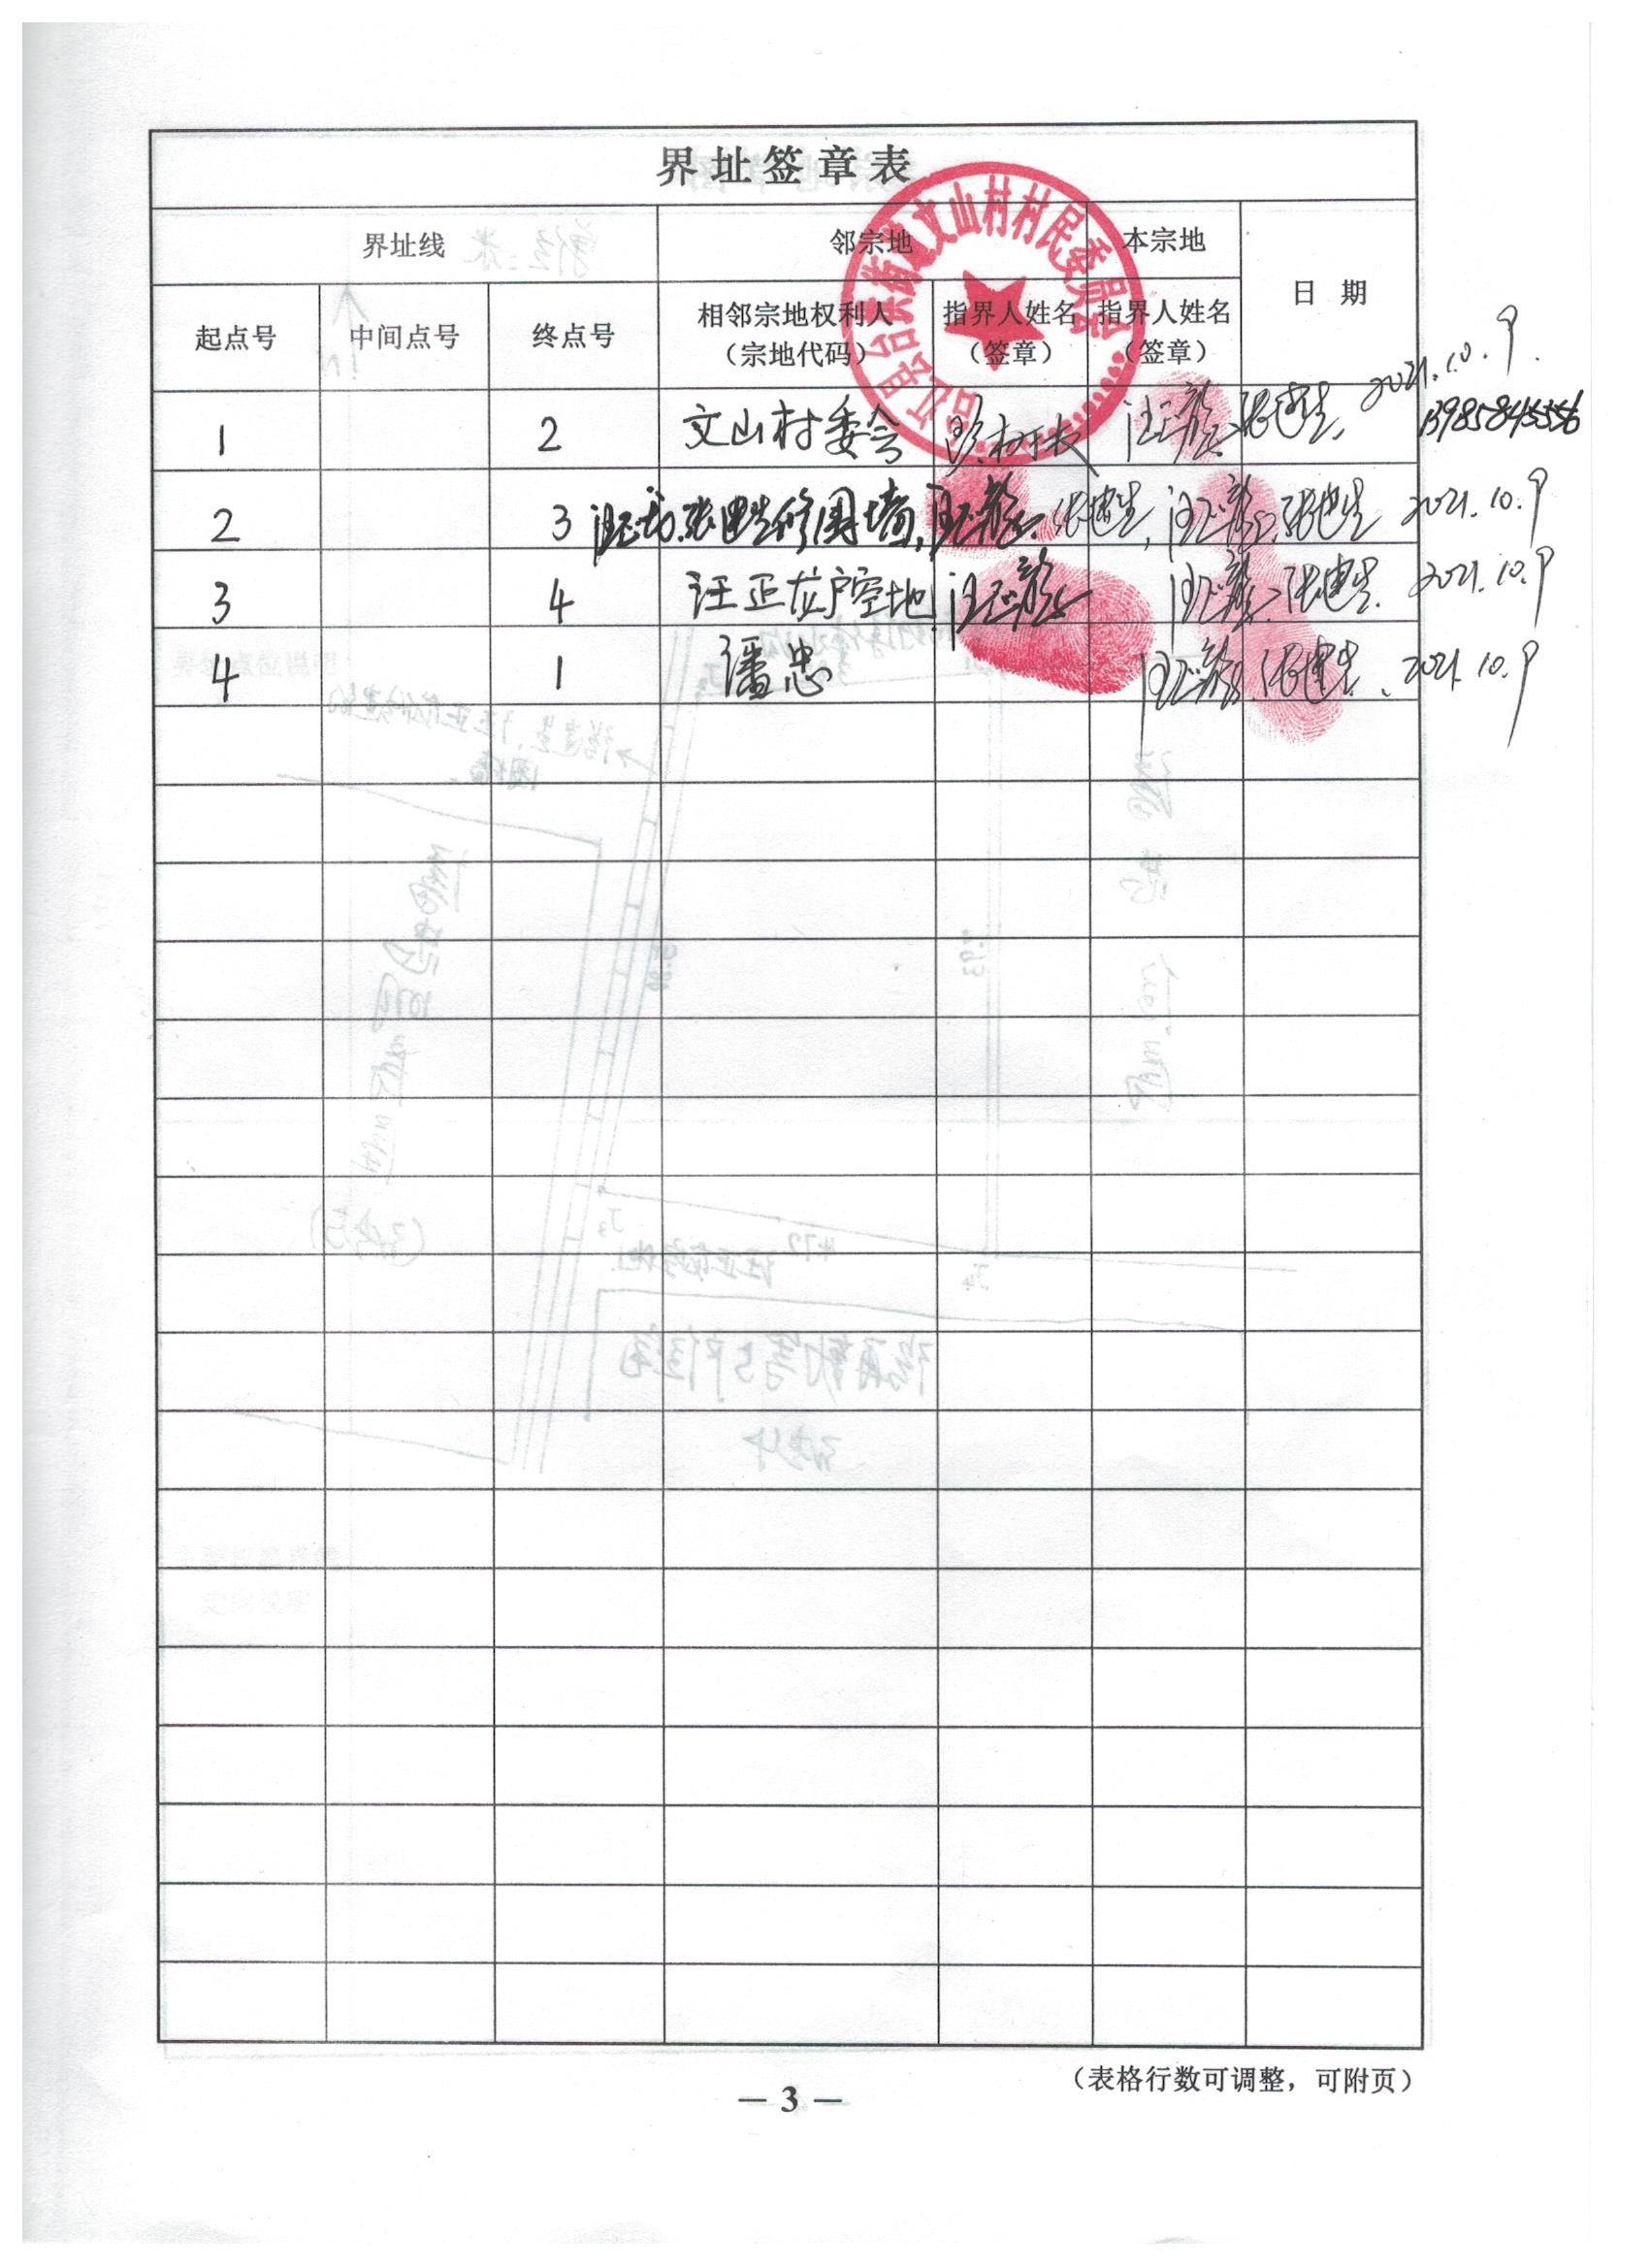 界址签章表
界址线 邻宗地 本宗地 日 期
起点号 中间点号 终点号 相邻宗地权利人（宗地代码） 指界人姓名（签章） 指界人姓名（签章）
台江县台拱街道文山村村民委员会
1 2 文山村委会 汪正龙、张建生、 2021.10.9.
13985845556
2 3 汪正龙、张建生修围墙, 汪正龙、张建生, 汪正龙、张建生 2021.10.9
3 4 汪正龙户空地 汪正龙 汪正龙、张建生. 2021.10.9
4 1 潘忠 汪正龙 张建生、 2021.10.9
（表格行数可调整，可附页）
— 3 —